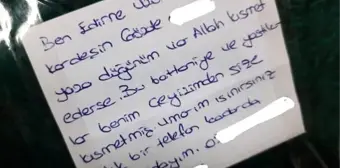 Ben Edirne
kardeşin Gözde
yaza düğünüm var Allah kısmet
ederse. Bu battaniye ve yastık
lar benim çeyizimden size
kısmetmiş umarım ısınırsınız
bir telefon kadarda
yım.